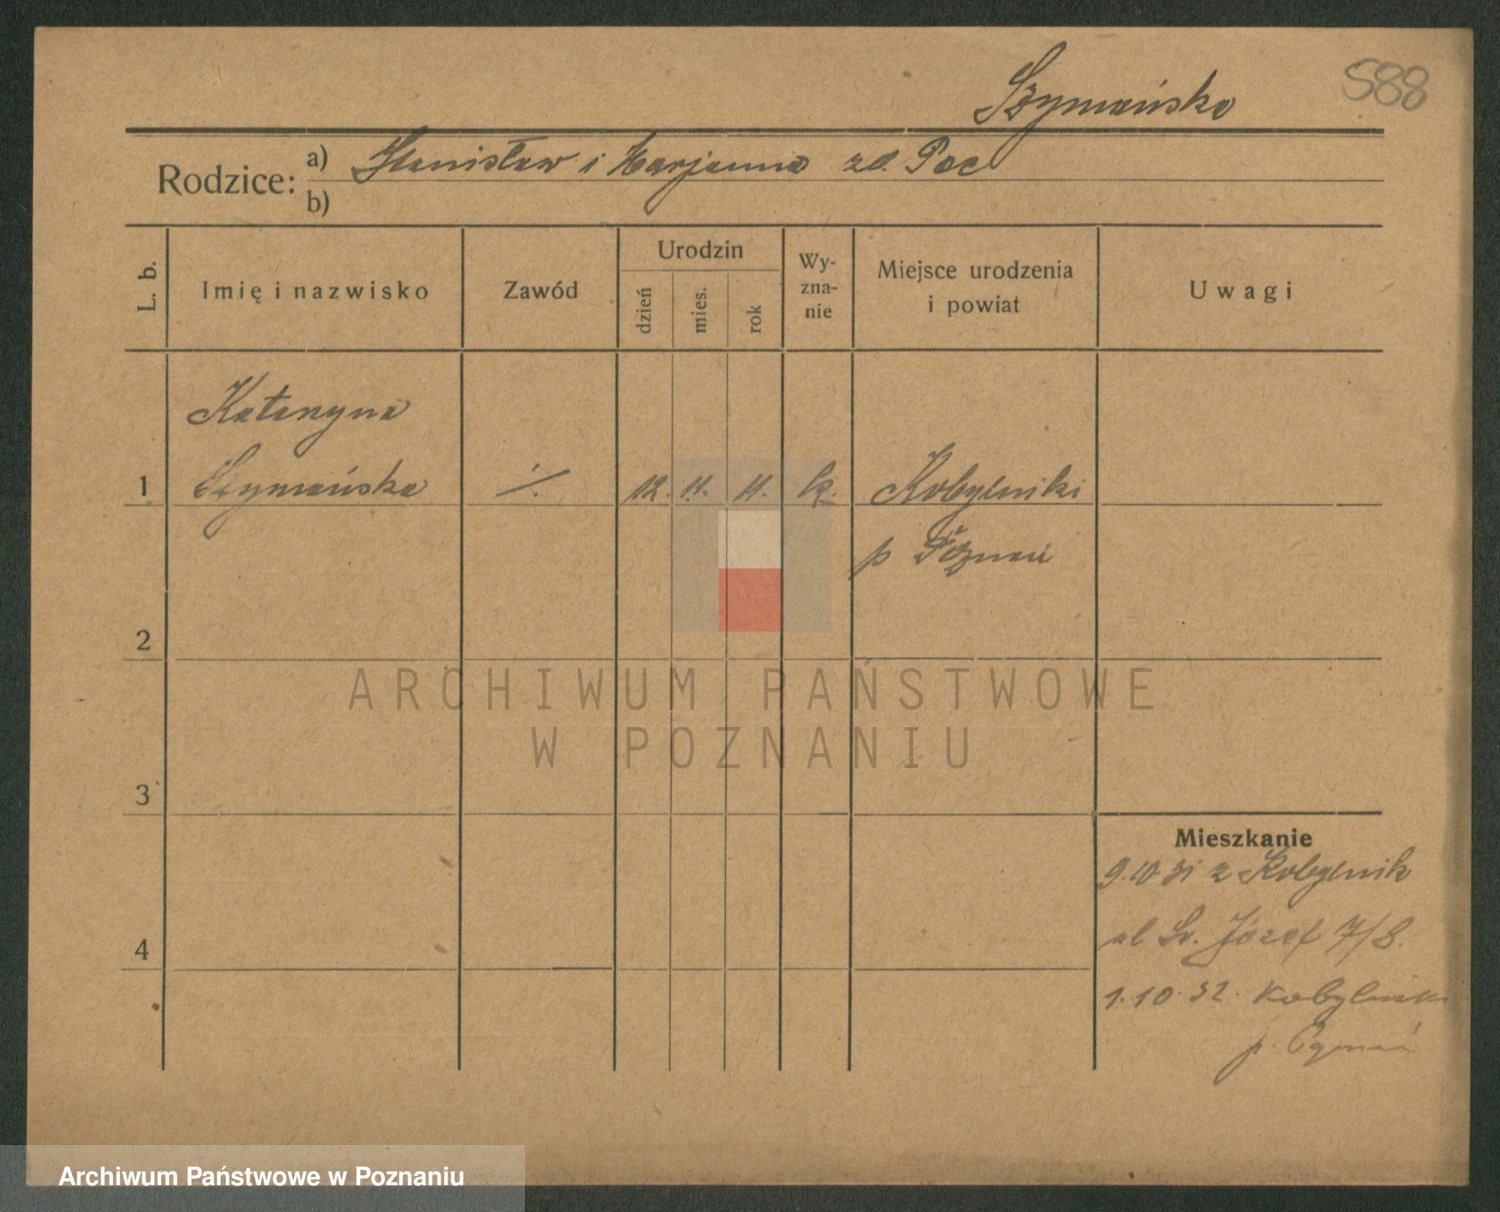 Szymańska
588
Rodzice: a) Stanisław i Marjanna zd. Pac
b)
L. b.
Imię i nazwisko
Zawód
Urodzin
dzień
mies.
rok
Wy-
zna-
nie
Miejsce urodzenia
i powiat
Uwagi
Katarzyna
1 Szymańska ·/. 12. 11. 11. Kobylniki
p Poznań
2
3
4
ARCHIWUM PAŃSTWOWE
W POZNANIU
Mieszkanie
9.10 31 z Kobylnik
ul Św. Józef 7/8.
1.10.32. Kobylniki
p.
Archiwum Państwowe w Poznaniu